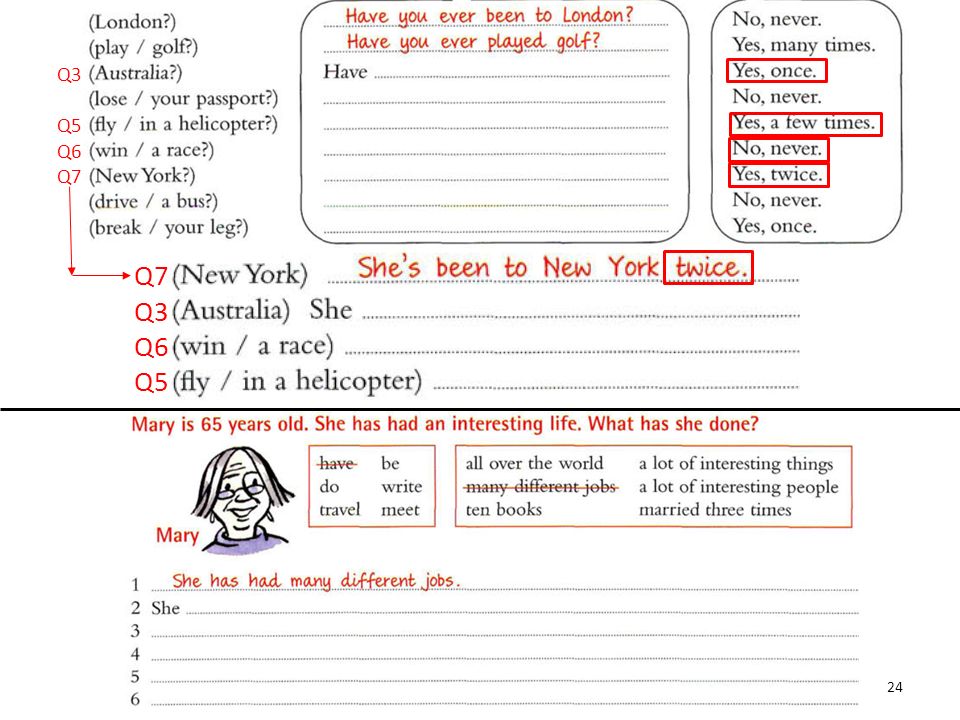 (London?) Have you ever been to London? No, never.
(play / golf?) Have you ever played golf? Yes, many times.
Q3 (Australia?) Have Yes, once.
(lose / your passport?) No, never.
Q5 (fly / in a helicopter?) Yes, a few times.
Q6 (win / a race?) No, never.
Q7 (New York?) Yes, twice.
(drive / a bus?) No, never.
(break / your leg?) Yes, once.
Q7 (New York) She's been to New York twice.
Q3 (Australia) She
Q6 (win / a race)
Q5 (fly / in a helicopter)
Mary is 65 years old. She has had an interesting life. What has she done?
have be all over the world a lot of interesting things
do write many different jobs a lot of interesting people
travel meet ten books married three times
Mary
1 She has had many different jobs.
2 She
3
4
5
6
24